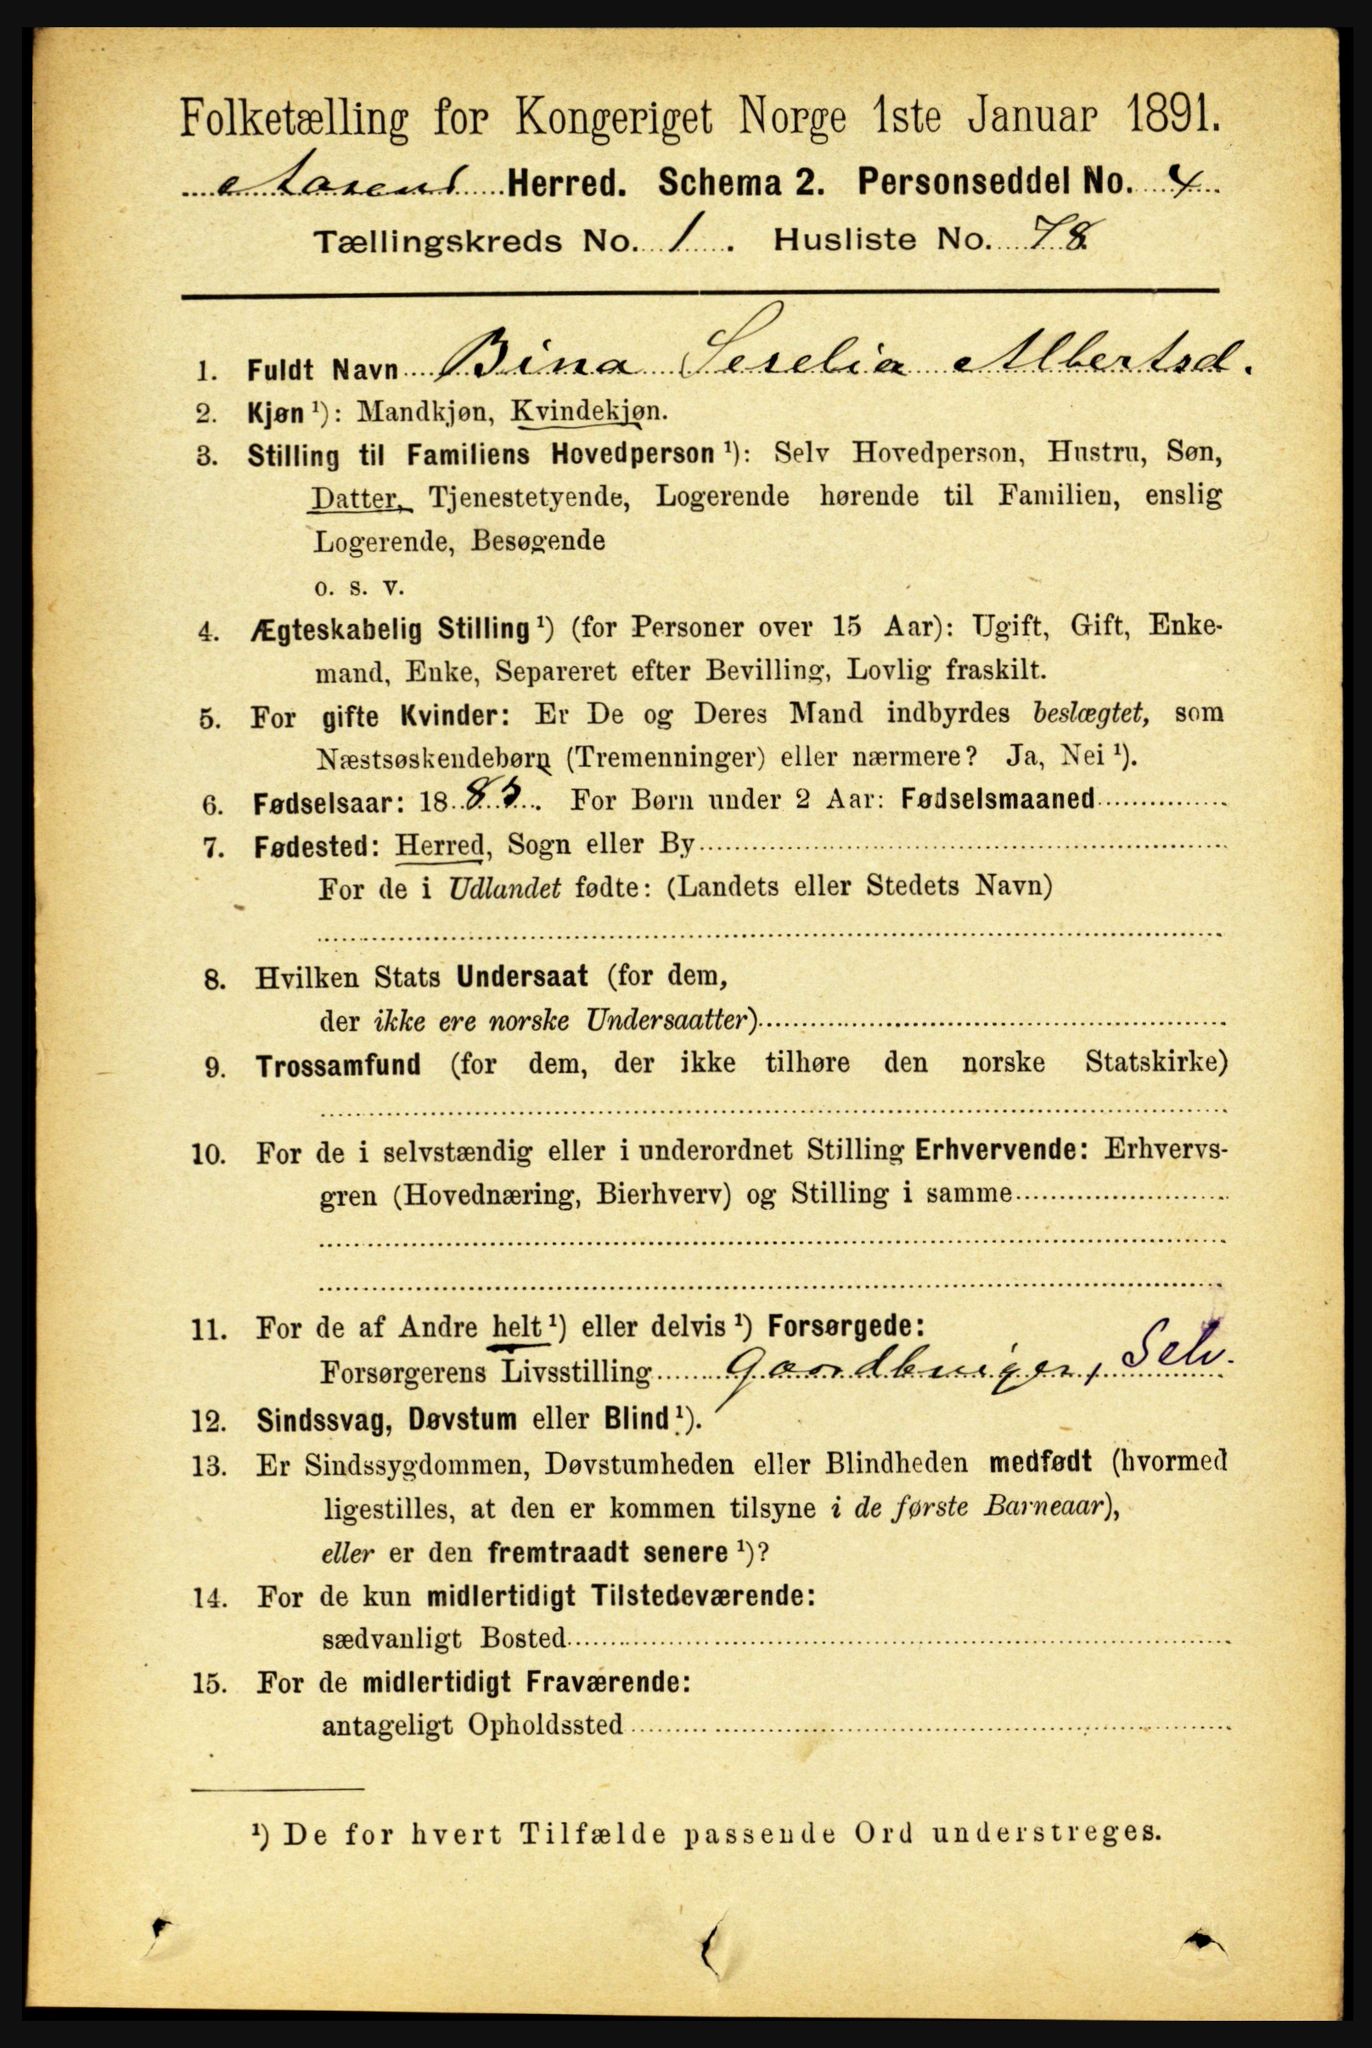 Folketælling for Kongeriget Norge 1ste Januar 1891.
Herred. Schema 2. Personseddel No. 4
Tællingskreds No. 1. Husliste No. 78
1. Fuldt Navn Bina Serelia Albertsd.
2. Kjøn ¹): Mandkjøn, Kvindekjøn.
3. Stilling til Familiens Hovedperson ¹): Selv Hovedperson, Hustru, Søn,
Datter, Tjenestetyende, Logerende hørende til Familien, enslig
Logerende, Besøgende
o. s. v.
4. Ægteskabelig Stilling ¹) (for Personer over 15 Aar): Ugift, Gift, Enke-
mand, Enke, Separeret efter Bevilling, Lovlig fraskilt.
5. For gifte Kvinder: Er De og Deres Mand indbyrdes beslægtet, som
Næstsøskendebørn (Tremenninger) eller nærmere? Ja, Nei ¹).
6. Fødselsaar: 18 For Børn under 2 Aar: Fødselsmaaned
7. Fødested: Herred, Sogn eller By
For de i Udlandet fødte: (Landets eller Stedets Navn)
8. Hvilken Stats Undersaat (for dem,
der ikke ere norske Undersaatter)
9. Trossamfund (for dem, der ikke tilhøre den norske Statskirke)
10. For de i selvstændig eller i underordnet Stilling Erhvervende: Erhvervs-
gren (Hovednæring, Bierhverv) og Stilling i samme
11. For de af Andre helt ¹) eller delvis ¹) Forsørgede:
Forsørgerens Livsstilling Gaardbruger, Selv.
12. Sindssvag, Døvstum eller Blind ¹).
13. Er Sindssygdommen, Døvstumheden eller Blindheden medfødt (hvormed
ligestilles, at den er kommen tilsyne i de første Barneaar),
eller er den fremtraadt senere ¹)?
14. For de kun midlertidigt Tilstedeværende:
sædvanligt Bosted
15. For de midlertidigt Fraværende:
antageligt Opholdssted
¹) De for hvert Tilfælde passende Ord understreges.